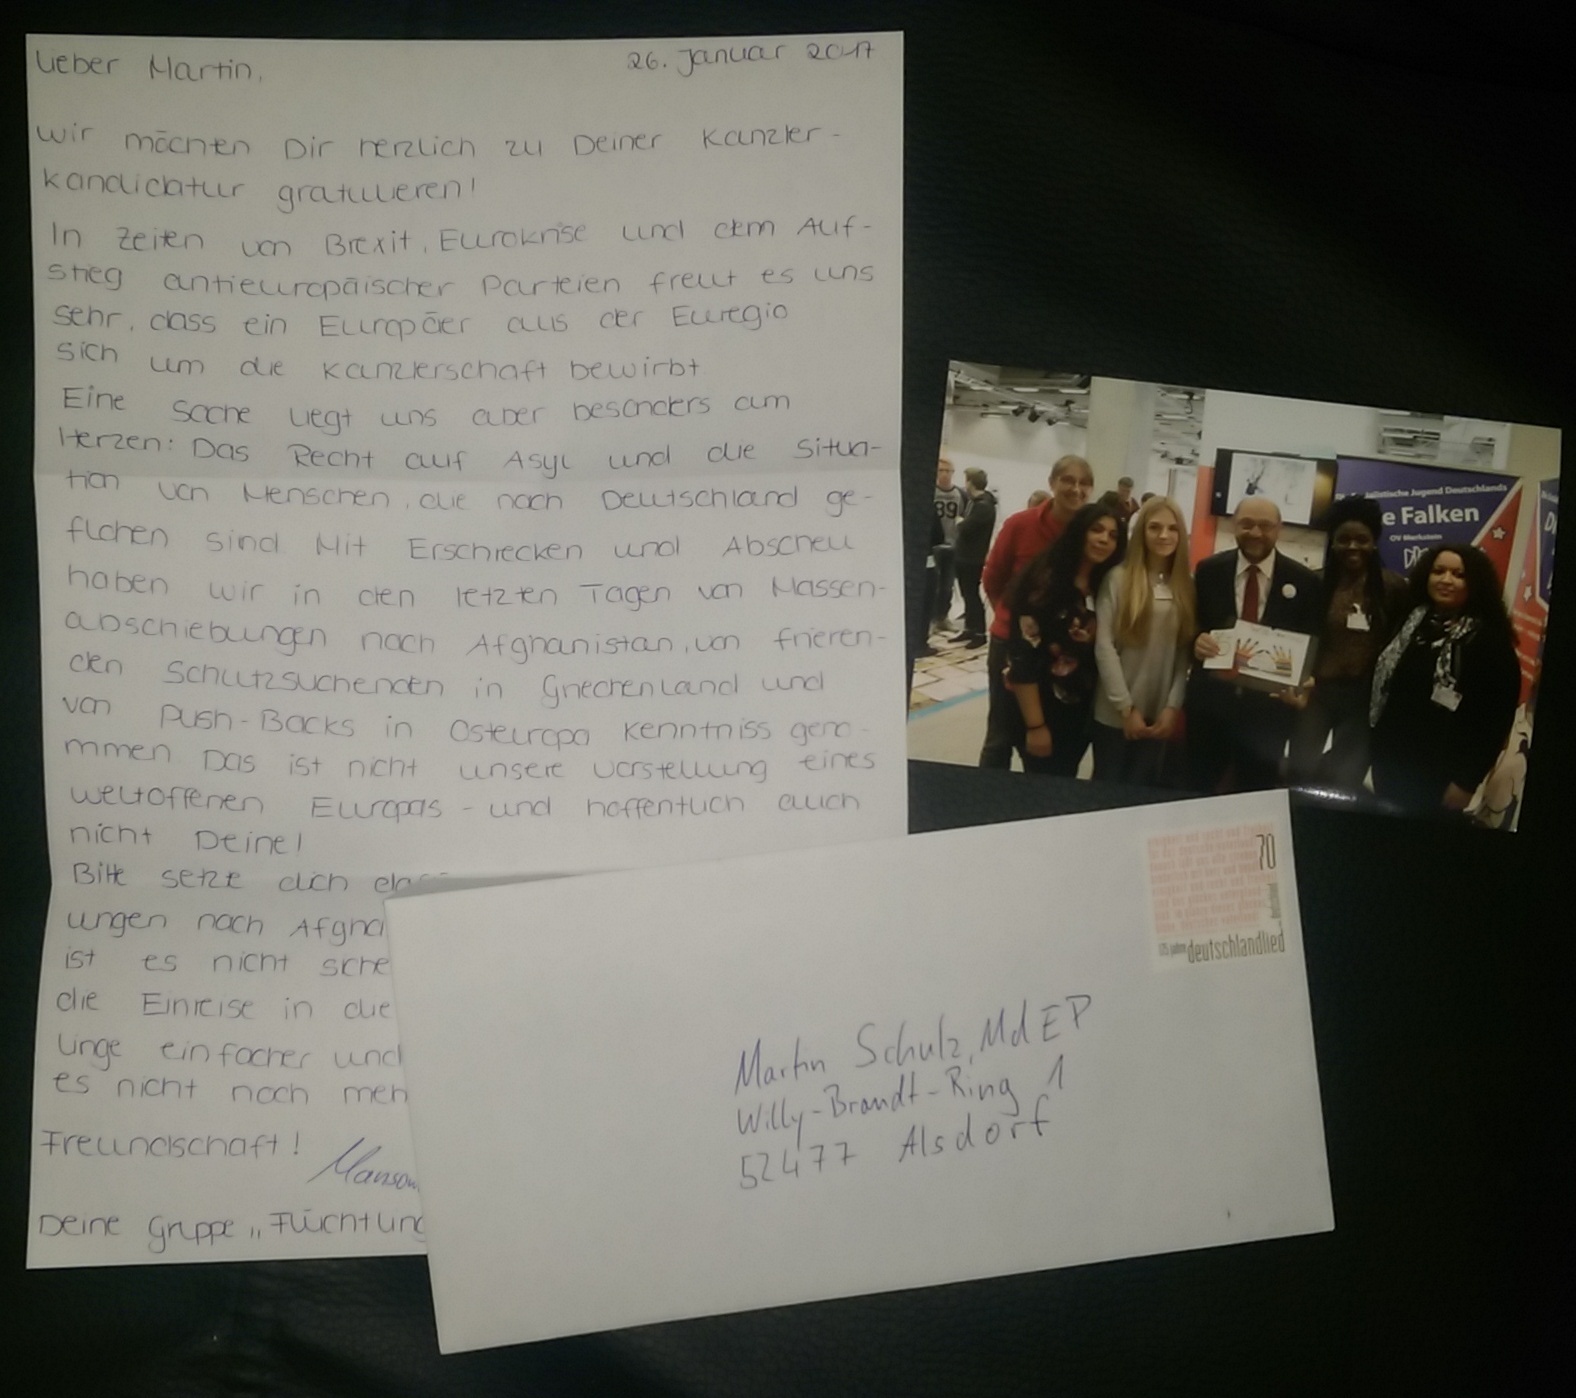 Lieber Martin,
26. Januar 2017
wir möchten Dir herzlich zu Deiner Kanzler-
kandidatur gratulieren!
In Zeiten von Brexit, Eurokrise und dem Auf-
stieg antieuropäischer Parteien freut es uns
sehr, dass ein Europäer aus der Euregio
sich um die Kanzlerschaft bewirbt
Eine Sache liegt uns aber besonders am
Herzen: Das Recht auf Asyl und die Situa-
tion von Menschen, die nach Deutschland ge-
flohen sind Mit Erschrecken und Abscheu
haben wir in den letzten Tagen von Massen-
abschiebungen nach Afghanistan, von frieren-
den Schutzsuchenden in Griechenland und
von Push-Backs in Osteuropa kenntniss geno-
mmen Das ist nicht unsere Vorstellung eines
weltoffenen Europas - und hoffentlich auch
nicht Deine!
Bitte setze dich
ungen nach Afgha
ist es nicht siche
die Einreise in die
linge einfacher und
es nicht noch meh
Freundschaft!
Deine Gruppe „Flüchtling
89
listische Jugend Deutschlands
e Falken
OV Merkstein
70
175 Jahre deutschlandlied
Martin Schulz, MdEP
Willy-Brandt-Ring 1
52477 Alsdorf